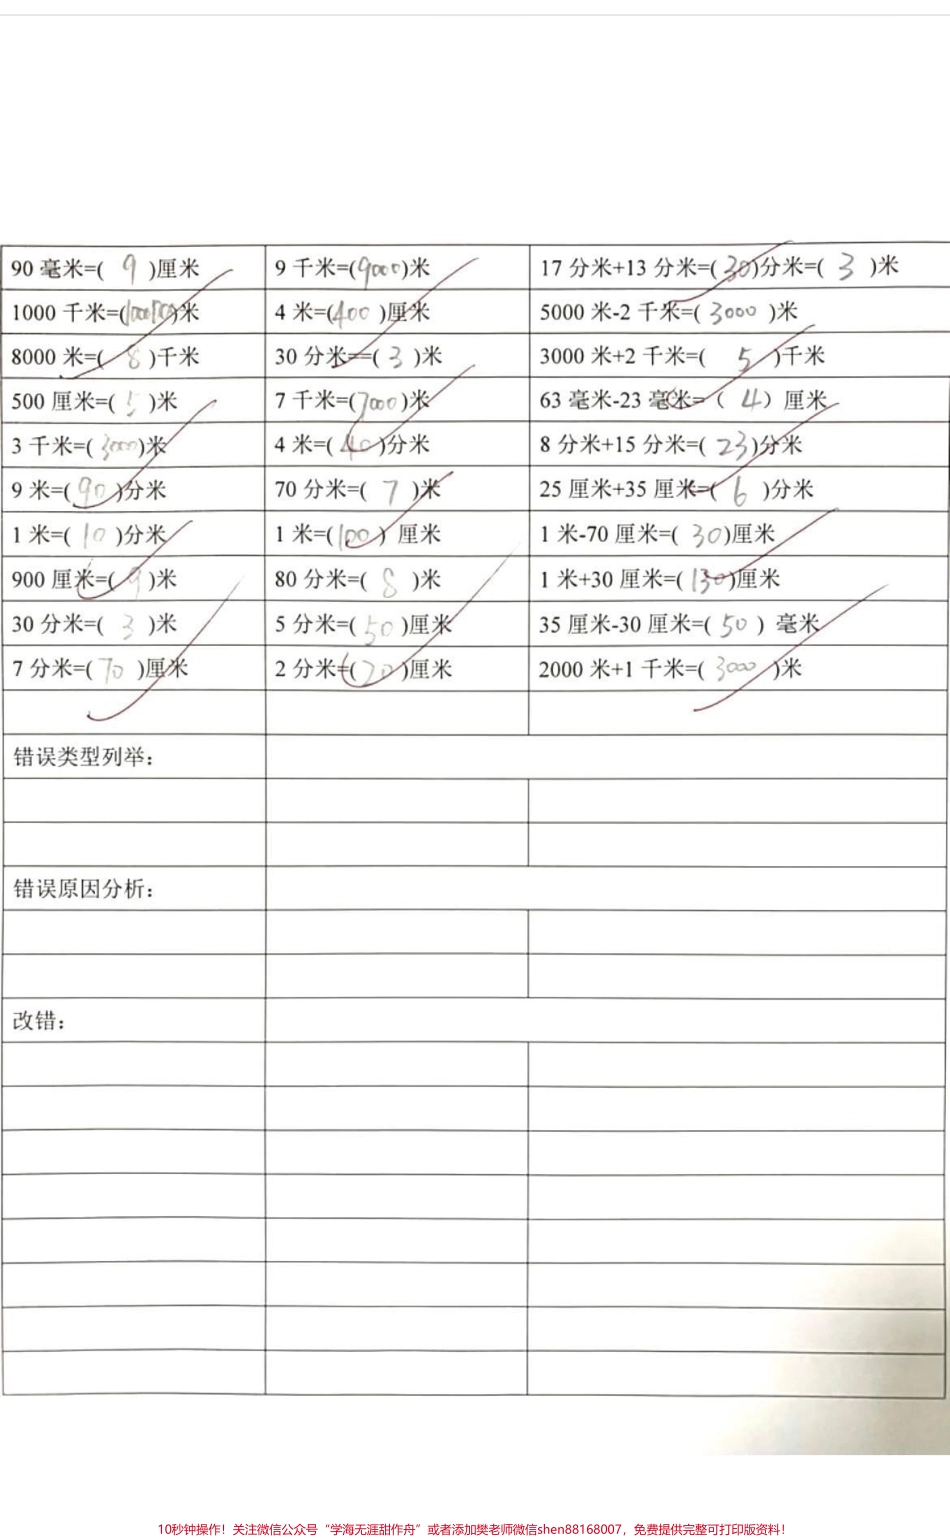 90 毫米=( 9 )厘米 9 千米=(9000)米 17 分米+13 分米=(30)分米=( 3 )米
1000 千米=( )米 4 米=(400 )厘米 5000 米-2 千米=( 3000 )米
8000 米=( 8 )千米 30 分米=( 3 )米 3000 米+2 千米=( 5 )千米
500 厘米=( 5 )米 7 千米=(7000)米 63 毫米-23 毫米=( 4 )厘米
3 千米=(3000)米 4 米=( 40 )分米 8 分米+15 分米=( 23 )分米
9 米=( 90 )分米 70 分米=( 7 )米 25 厘米+35 厘米=( 6 )分米
1 米=( 10 )分米 1 米=(100 ) 厘米 1 米-70 厘米=( 30 )厘米
900 厘米=( 9 )米 80 分米=( 8 )米 1 米+30 厘米=( 130 )厘米
30 分米=( 3 )米 5 分米=( 50 )厘米 35 厘米-30 厘米=( 50 ) 毫米
7 分米=( 70 )厘米 2 分米=( 20 )厘米 2000 米+1 千米=( 3000 )米
错误类型列举:
错误原因分析:
改错:
10秒钟操作！关注微信公众号“学海无涯甜作舟”或者添加樊老师微信shen88168007，免费提供完整可打印版资料！